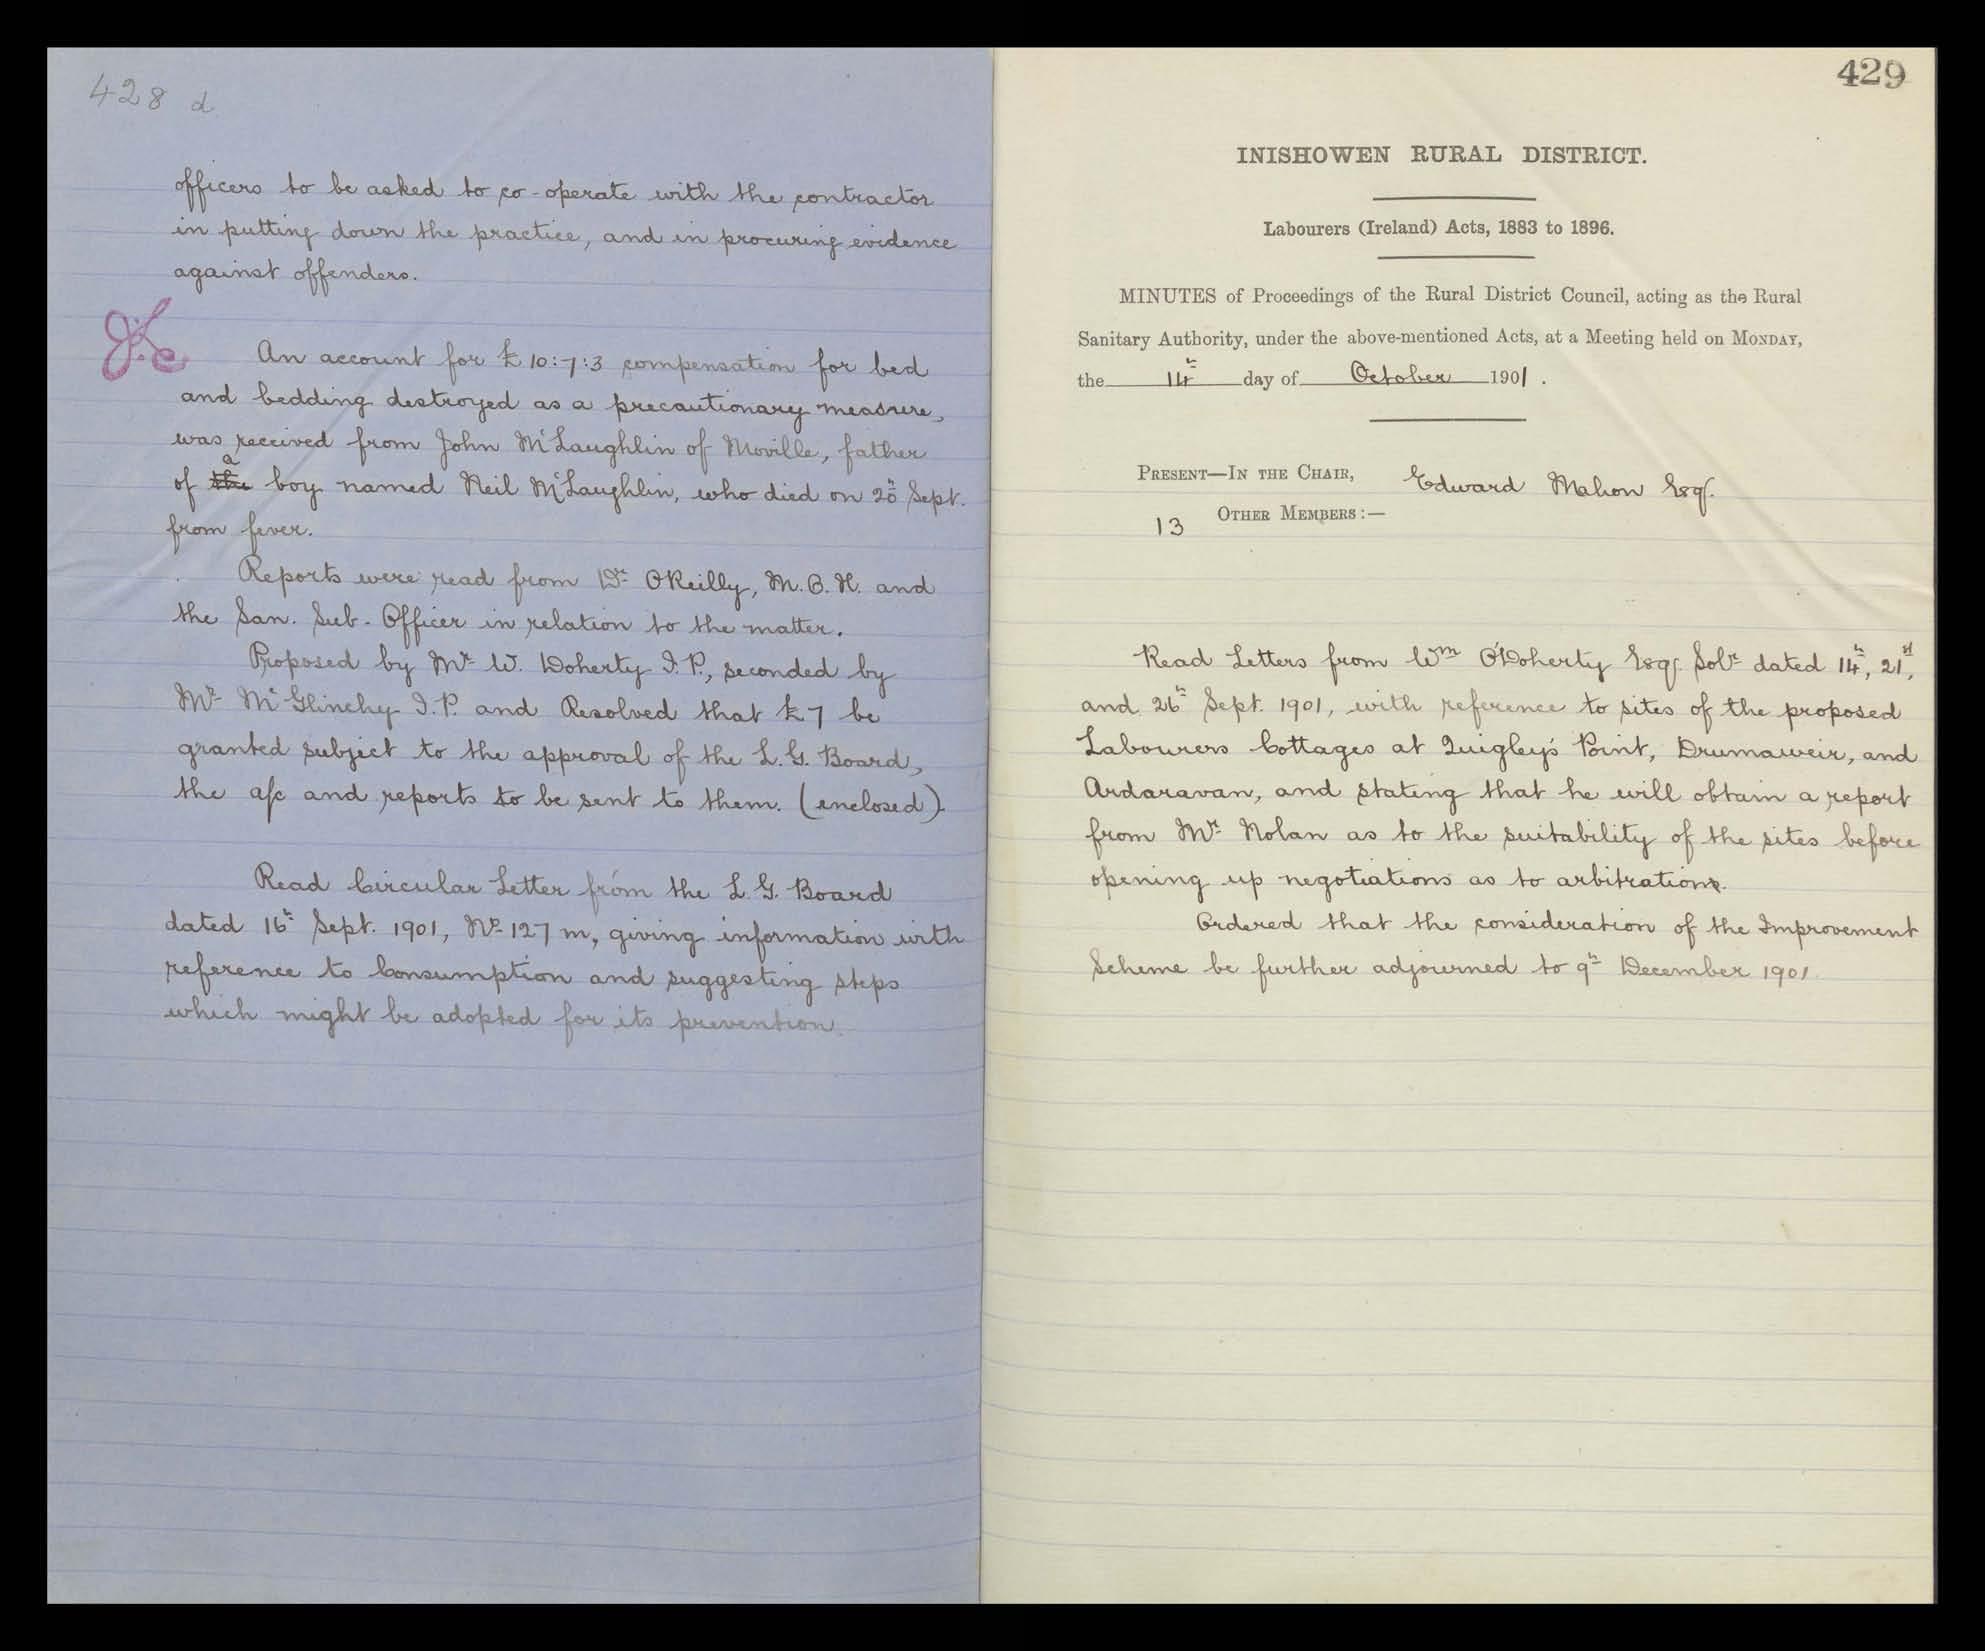 428 d
officers to be asked to co-operate with the contractor
in putting down the practice, and in procuring evidence
against offenders.
An account for £10:7:3 compensation for bed
and bedding destroyed as a precautionary measure,
was received from John McLaughlin of Moville, father
of the a boy named Neil McLaughlin, who died on 20th Sept.
from fever.
Reports were read from Dr O'Reilly, M.O.H. and
the San. Sub-Officer in relation to the matter.
Proposed by Mr W. Doherty J.P., seconded by
Mr McGlinchy J.P. and Resolved that £7 be
granted subject to the approval of the L.G. Board,
the a/c and reports to be sent to them. (enclosed).
Read Circular Letter from the L.G. Board
dated 16th Sept. 1901, No 127 m, giving information with
reference to Consumption and suggesting steps
which might be adopted for its prevention.
429
INISHOWEN RURAL DISTRICT.
Labourers (Ireland) Acts, 1883 to 1896.
MINUTES of Proceedings of the Rural District Council, acting as the Rural
Sanitary Authority, under the above-mentioned Acts, at a Meeting held on MONDAY,
the 14th day of October 1901.
PRESENT—IN THE CHAIR, Edward Mahon Esq.
13 OTHER MEMBERS:—
Read Letters from Wm O'Doherty Esq. Solr dated 14th, 21st,
and 26th Sept. 1901, with reference to sites of the proposed
Labourers Cottages at Quigley's Point, Drumaweir, and
Ardaravan, and stating that he will obtain a report
from Mr Nolan as to the suitability of the sites before
opening up negotiations as to arbitration.
Ordered that the consideration of the Improvement
Scheme be further adjourned to 9th December 1901.